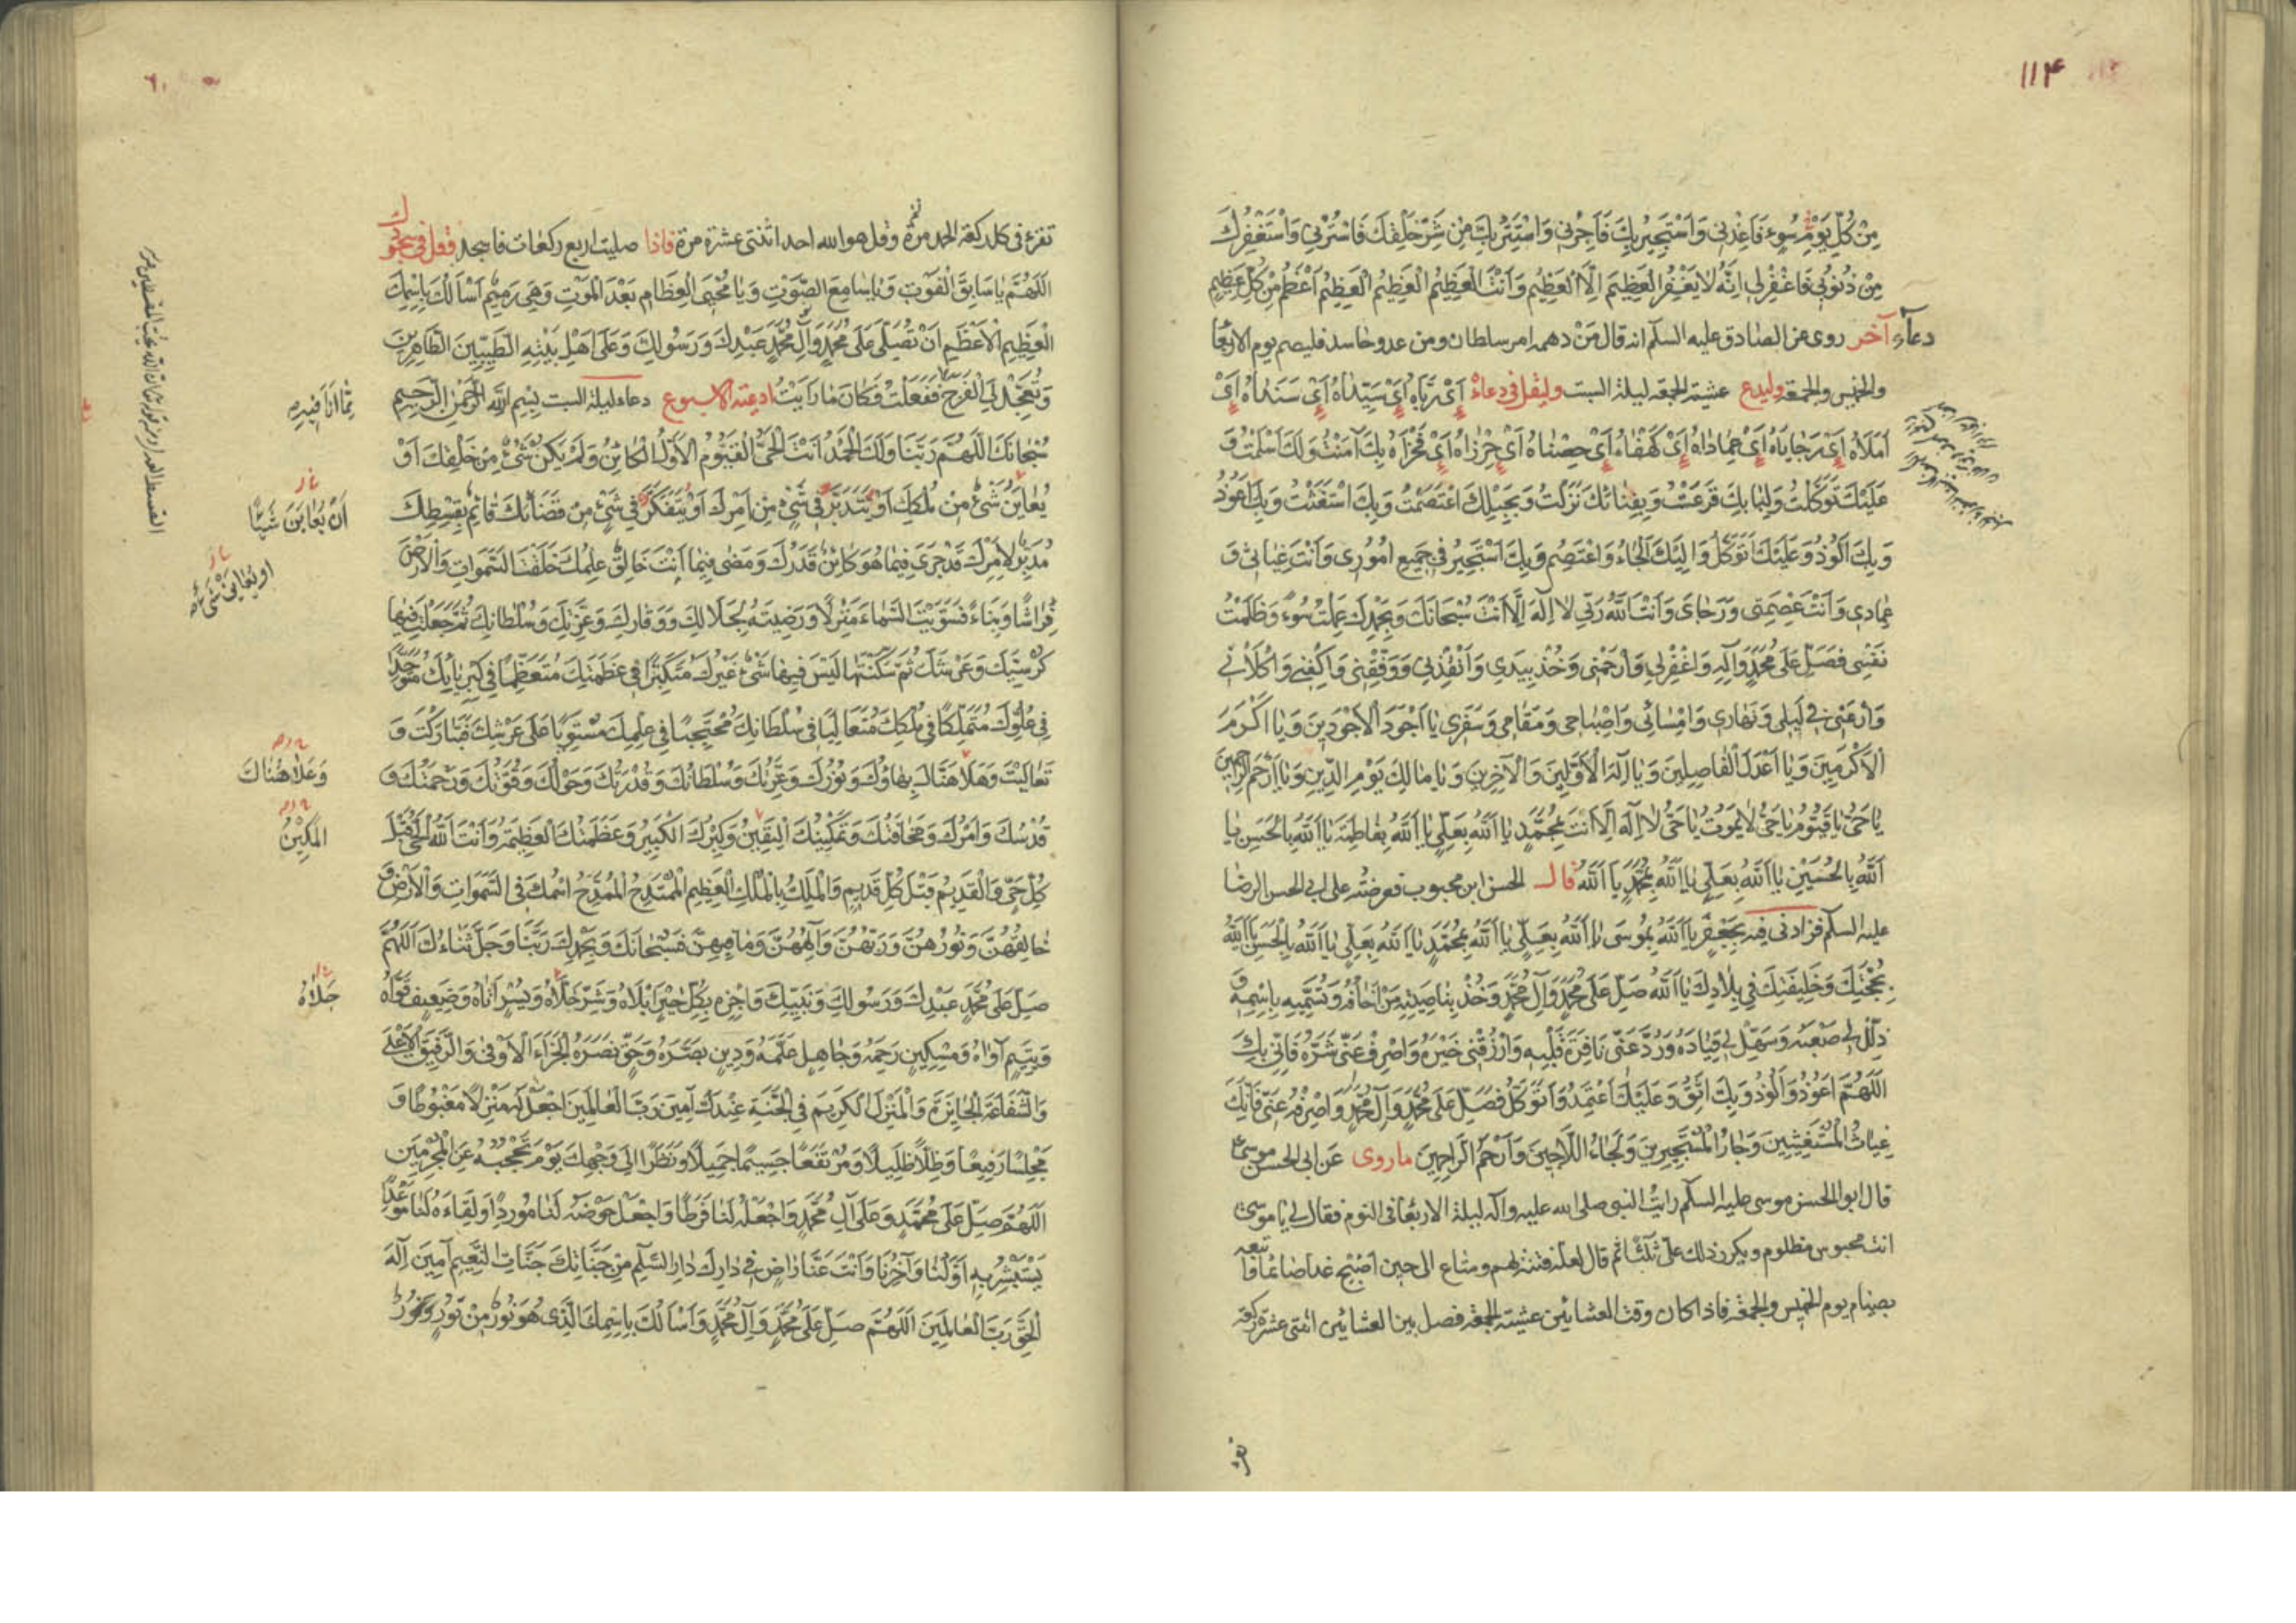 ١١۴
مِنْ كُلِّ يَوْمِ سُوءٍ فَاَعِذْنِي وَاَسْتَجِيرُ بِكَ فَاَجِرْنِي وَاَسْتَتِرُ بِكَ مِنْ شَرِّ خَلْقِكَ فَاسْتُرْنِي وَاَسْتَغْفِرُكَ
مِنْ ذُنُوبِي فَاغْفِرْ لِي اِنَّهُ لَا يَغْفِرُ الْعَظِيمَ اِلَّا الْعَظِيمُ وَاَنْتَ الْعَظِيمُ الْعَظِيمُ الْعَظِيمُ اَعْظَمُ مِنْ كُلِّ عَظِيمٍ
دعآءٌ آخر روى عن الصادق عليه السلم انه قال مَنْ دهمه امر سلطان ومن عدو حاسد فليصم يوم الاربعا
والخميس والجمعة وليدع عشية الجمعه ليلة السبت وليقل في دعاءْ اَىْ رَبَّاهُ اَىْ سَيِّدَاهُ اَىْ سَنَدَاهُ اَىْ
اَمَلَاهُ اَىْ رَجَايَاهُ اَىْ عِمَادَاهُ اَىْ كَهْفَاهُ اَىْ حِصْنَاهُ اَىْ حِرْزَاهُ اَىْ فَخْرَاهُ بِكَ آمَنْتُ وَلَكَ اَسْلَمْتُ وَ
عَلَيْكَ تَوَكَّلْتُ وَلِبَابِكَ قَرَعْتُ وَبِفِنَائِكَ نَزَلْتُ وَبِحَبْلِكَ اعْتَصَمْتُ وَبِكَ اسْتَغَثْتُ وَبِكَ اَعُوذُ
وَبِكَ اَلُوذُ وَعَلَيْكَ اَتَوَكَّلُ وَاِلَيْكَ اَلْجَاُ وَاَعْتَصِمُ وَبِكَ اَسْتَجِيرُ فِي جَمِيعِ اُمُورِي وَاَنْتَ غِيَاثِي وَ
عِمَادِي وَاَنْتَ عِصْمَتِي وَرَجَائِي وَاَنْتَ اللّٰهُ رَبِّي لَا اِلٰهَ اِلَّا اَنْتَ سُبْحَانَكَ وَبِحَمْدِكَ عَمِلْتُ سُوءً وَظَلَمْتُ
نَفْسِي فَصَلِّ عَلَى مُحَمَّدٍ وَآلِهِ وَاغْفِرْ لِي وَارْحَمْنِي وَخُذْ بِيَدِي وَاَنْقِذْنِي وَوَفِّقْنِي وَاكْفِنِي وَاكْلَاْنِي
وَارْعَنِي فِي لَيْلِي وَنَهَارِي وَاِمْسَائِي وَاِصْبَاحِي وَمَقَامِي وَسَفَرِي يَا اَجْوَدَ الْاَجْوَدِينَ وَيَا اَكْرَمَ
الْاَكْرَمِينَ وَيَا اَعْدَلَ الْفَاصِلِينَ وَيَا اِلٰهَ الْاَوَّلِينَ وَالْآخِرِينَ وَيَا مَالِكَ يَوْمِ الدِّينِ وَيَا اَرْحَمَ الرَّاحِمِينَ
يَا حَىُّ يَا قَيُّومُ يَا حَىُّ لَا يَمُوتُ يَا حَىُّ لَا اِلٰهَ اِلَّا اَنْتَ بِمُحَمَّدٍ يَا اَللّٰهُ بِعَلِيٍّ يَا اَللّٰهُ بِفَاطِمَةَ يَا اَللّٰهُ بِالْحَسَنِ يَا
اَللّٰهُ بِالْحُسَيْنِ يَا اَللّٰهُ بِعَلِيٍّ يَا اَللّٰهُ بِمُحَمَّدٍ يَا اَللّٰهُ قال الحسن ابن محبوب فعرضته على ابى الحسن الرضا
عليه السلم فزادنى فيه بِجَعْفَرٍ يَا اَللّٰهُ بِمُوسَى يَا اَللّٰهُ بِعَلِيٍّ يَا اَللّٰهُ بِمُحَمَّدٍ يَا اَللّٰهُ بِعَلِيٍّ يَا اَللّٰهُ بِالْحَسَنِ يَا اَللّٰهُ
بِحُجَّتِكَ وَخَلِيفَتِكَ فِي بِلَادِكَ يَا اَللّٰهُ صَلِّ عَلَى مُحَمَّدٍ وَآلِ مُحَمَّدٍ وَخُذْ بِنَاصِيَةِ مَنْ اَخَافُهُ وَتُسَمِّيهِ بِاسْمِهِ وَ
ذَلِّلْ لِي صَعْبَهُ وَسَهِّلْ لِي قِيَادَهُ وَرُدَّ عَنِّي نَافِرَةَ قَلْبِهِ وَارْزُقْنِي خَيْرَهُ وَاصْرِفْ عَنِّي شَرَّهُ فَاِنِّي بِكَ
اَللّٰهُمَّ اَعُوذُ وَاَلُوذُ وَبِكَ اَثِقُ وَعَلَيْكَ اَعْتَمِدُ وَاَتَوَكَّلُ فَصَلِّ عَلَى مُحَمَّدٍ وَآلِ مُحَمَّدٍ وَاصْرِفْهُ عَنِّي فَاِنَّكَ
غِيَاثُ الْمُسْتَغِيثِينَ وَجَارُ الْمُسْتَجِيرِينَ وَلَجَاءُ اللَّاجِينَ وَاَرْحَمُ الرَّاحِمِينَ ما روى عن ابى الحسن موسى ع
قال ابو الحسن موسى عليه السلم رايت النبي صلى الله عليه وآله ليلة الاربعا فى النوم فقال لي يا موسى
انت محبوس مظلوم ويكرر ذلك علىّ ثلثا ثم قال لعله فتنة لهم ومتاع الى حين اَصْبِحْ غدا صائما واتبعه
بصيام يوم الخميس والجمعة فاذا كان وقت العشائين عشية الجمعة فصل بين العشائين اثنتى عشرة ركعة
تقرء
تقرء فى كل ركعة الحمد مرة وقل هو الله احد اثنتى عشرة مرة فاذا صليت اربع ركعات فاسجد فقل في سجودك
اللّٰهُمَّ يَا سَابِقَ الْفَوْتِ وَيَا سَامِعَ الصَّوْتِ وَيَا مُحْيِيَ الْعِظَامِ بَعْدَ الْمَوْتِ وَهِيَ رَمِيمٌ اَسْاَلُكَ بِاسْمِكَ
الْعَظِيمِ الْاَعْظَمِ اَنْ تُصَلِّيَ عَلَى مُحَمَّدٍ وَآلِ مُحَمَّدٍ عَبْدِكَ وَرَسُولِكَ وَعَلَى اَهْلِ بَيْتِهِ الطَّيِّبِينَ الطَّاهِرِينَ
وَتُعَجِّلَ لِيَ الْفَرَجَ فَفَعَلْتُ فَكَانَ مَا رَاَيْتُ ادعية الاسبوع دعاء ليلة السبت بِسْمِ اللّٰهِ الرَّحْمٰنِ الرَّحِيمِ
مِمَّا اَنَا فِيهِ
سُبْحَانَكَ اللّٰهُمَّ رَبَّنَا وَلَكَ الْحَمْدُ اَنْتَ الْحَىُّ الْقَيُّومُ الْاَوَّلُ الْكَائِنُ وَلَمْ يَكُنْ شَىْءٌ مِنْ خَلْقِكَ اَوْ
يُعَايَنُ شَىْءٌ مِنْ مُلْكِكَ اَوْ يُتَدَبَّرُ فِي شَىْءٍ مِنْ اَمْرِكَ اَوْ يُتَفَكَّرُ فِي شَىْءٍ مِنْ قَضَائِكَ قَائِمٌ بِقِسْطِكَ
اَنْ يُعَايِنَ شَيْئًا
مُدَبِّرٌ لِاَمْرِكَ قَدْ جَرَى فِيمَا هُوَ كَائِنٌ قَدَرُكَ وَمَضَى فِيمَا اَنْتَ خَالِقٌ عِلْمُكَ خَلَقْتَ السَّمٰوَاتِ وَالْاَرْضَ
فِرَاشًا وَبِنَاءً فَسَوَّيْتَ السَّمَاءَ مَنْزِلًا وَرَضِيتَهُ لِجَلَالِكَ وَوَقَارِكَ وَعِزَّتِكَ وَسُلْطَانِكَ ثُمَّ جَعَلْتَ فِيهَا
كُرْسِيَّكَ وَعَرْشَكَ ثُمَّ سَكَنْتَهَا لَيْسَ فِيهَا شَىْءٌ غَيْرُكَ مُتَكَبِّرًا فِي عَظَمَتِكَ مُتَعَظِّمًا فِي كِبْرِيَائِكَ مُتَوَحِّدًا
فِي عُلُوِّكَ مُتَمَلِّكًا فِي مُلْكِكَ مُتَعَالِيًا فِي سُلْطَانِكَ مُحْتَجِبًا فِي عِلْمِكَ مُسْتَوِيًا عَلَى عَرْشِكَ فَتَبَارَكْتَ وَ
تَعَالَيْتَ وَعَلَا هُنَاكَ بِهَاؤُكَ وَنُورُكَ وَعِزَّتُكَ وَسُلْطَانُكَ وَقُدْرَتُكَ وَحَوْلُكَ وَقُوَّتُكَ وَرَحْمَتُكَ وَ
وَعَلَا هُنَاكَ
قُدْسُكَ وَاَمْرُكَ وَمَخَافَتُكَ وَتَمْكِينُكَ الْيَقِينُ وَكِبْرُكَ الْكَبِيرُ وَعَظَمَتُكَ الْعَظِيمَةُ وَاَنْتَ اللّٰهُ الْحَىُّ قَبْلَ
الْمَكِينُ
كُلِّ حَيٍّ وَالْقَدِيمُ قَبْلَ كُلِّ قَدِيمٍ وَالْمَلِكُ بِالْمُلْكِ الْعَظِيمِ الْمُمْتَدِحُ الْمُمَدَّحُ اسْمُكَ فِي السَّمٰوَاتِ وَالْاَرْضِ وَ
خَالِقُهُنَّ وَنُورُهُنَّ وَرَبُّهُنَّ وَاِلٰهُهُنَّ وَمَا فِيهِنَّ فَسُبْحَانَكَ وَبِحَمْدِكَ رَبَّنَا وَجَلَّ ثَنَاءُكَ اَللّٰهُمَّ
صَلِّ عَلَى مُحَمَّدٍ عَبْدِكَ وَرَسُولِكَ وَنَبِيِّكَ وَاجْزِهِ بِكُلِّ خَيْرٍ اَبْلَاهُ وَشَرٍّ جَلَاهُ وَيُسْرٍ اَتَاهُ وَضَعِيفٍ قَوَّاهُ
جَلَاهُ
وَيَتِيمٍ آوَاهُ وَمِسْكِينٍ رَحِمَهُ وَجَاهِلٍ عَلَّمَهُ وَدِينٍ بَصَّرَهُ وَحَقٍّ نَصَرَهُ الْجَزَاءَ الْاَوْفَى وَالرَّفِيقَ الْاَعْلَى
وَالشَّفَاعَةَ الْجَائِزَةَ وَالْمَنْزِلَ الْكَرِيمَ فِي الْجَنَّةِ عِنْدَكَ آمِينَ رَبَّ الْعَالَمِينَ اجْعَلْ لَهُ مَنْزِلًا مَغْبُوطًا وَ
مَجْلِسًا رَفِيعًا وَظِلًّا ظَلِيلًا وَمُرْتَفَعًا جَسِيمًا جَمِيلًا وَنَظَرًا اِلَى وَجْهِكَ يَوْمَ تَحْجُبُهُ عَنِ الْمُجْرِمِينَ
اَللّٰهُمَّ صَلِّ عَلَى مُحَمَّدٍ وَعَلَى آلِ مُحَمَّدٍ وَاجْعَلْهُ لَنَا فَرَطًا وَاجْعَلْ حَوْضَهُ لَنَا مَوْرِدًا وَلِقَاءَهُ لَنَا مَوْعِدًا
يَسْتَبْشِرُ بِهِ اَوَّلُنَا وَآخِرُنَا وَاَنْتَ عَنَّا رَاضٍ فِي دَارِكَ دَارِ السَّلَامِ مِنْ جَنَّاتِكَ جَنَّاتِ النَّعِيمِ آمِينَ اِلٰهَ
الْحَقِّ رَبَّ الْعَالَمِينَ اَللّٰهُمَّ صَلِّ عَلَى مُحَمَّدٍ وَآلِ مُحَمَّدٍ وَاَسْاَلُكَ بِاسْمِكَ الَّذِي هُوَ نُورٌ مِنْ نُورٍ وَنُورٌ